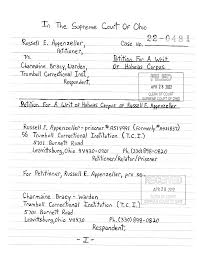 In The Supreme Court Of Ohio
22-0481
Russell E. Appenzeller, Case No.
Petitioner,
Vs. Petition For A Writ
Charmaine Bracy, Warden, Of Habeas Corpus
Trumbull Correctional Inst.,
Respondent.
FILED
APR 28 2022
CLERK OF COURT
SUPREME COURT OF OHIO
Petition For A Writ of Habeas Corpus or Russell E. Appenzeller
Russell E. Appenzeller - prisoner
% Trumbull Correctional Institution (T.C.I.)
5701 Burnett Road
Leavittsburg, Ohio 44430-0901 Ph. (330) 898-0820
Petitioner/Relator/Prisoner
For Petitioner, Russell E. Appenzeller, pro se.
RECEIVED
APR 28 2022
CLERK OF COURT
SUPREME COURT OF OHIO
Charmaine Bracy - Warden
Trumbull Correctional Institution (T.C.I.)
5701 Burnett Road
Leavittsburg, Ohio 44430 Ph. (330) 898-0820
Respondent;
- I -